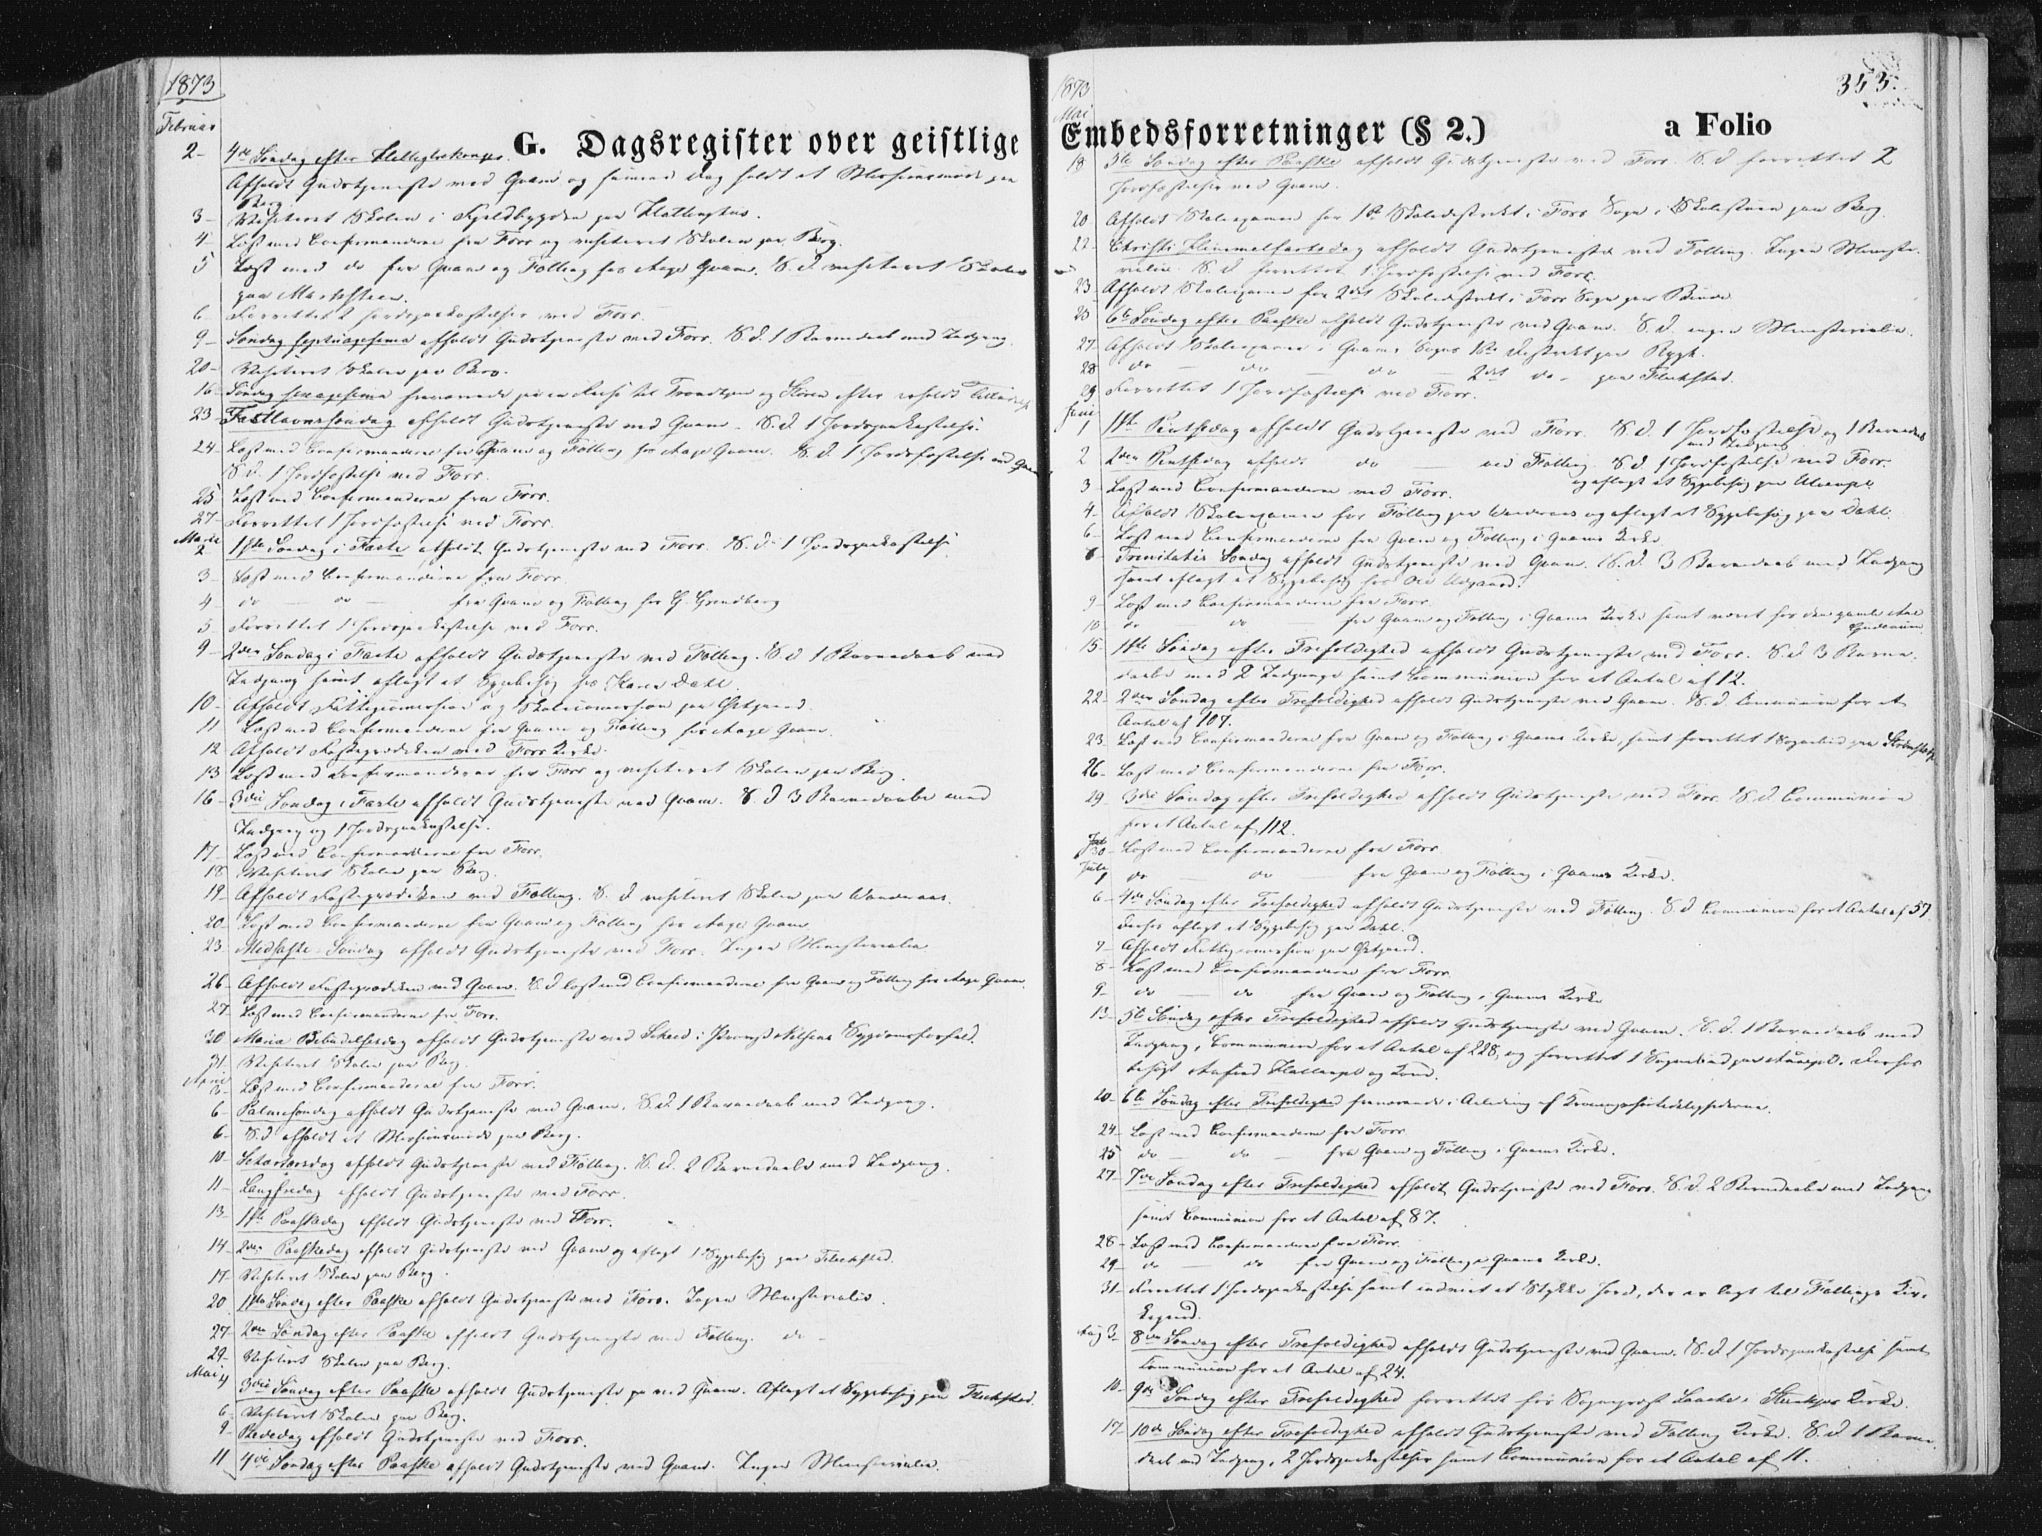 1873
Februar
G. Dagsregister over geistlige
2- 4de Søndag efter Helligtrekonger.
Afholdt Gudstjeneste ved Qvam og samme Dag holdt et Missionsmøde paa
Berg.
3- Visiteret Skolen i Fjeldbygden paa
4- Læst med Confirmanderne fra Forr og visiteret Skolen paa Berg.
5 Læst med do fra Qvam og Følling hos Aage Qvam. S.d. visiteret Skolen
paa
6 Forrettet 2 Jordspaakastelser ved Forr.
9- Søndag septuagesima afholdt Gudstjeneste ved Forr. S.d. 1 Barnedaab med Indgang.
20- Visiteret Skolen paa Berg.
16- Søndag sexagesima fraværende paa en Reise til Trondhjem og Støren efter erholdt Tilladelse
23- Fastelavnssøndag afholdt Gudstjeneste ved Qvam. S.d. 1 Jordspaakastelse.
24- Læst med Confirmanderne fra Qvam og Følling hos Aage Qvam. S.d. 1 Jordfæstelse ved Qvam
S.d. 1 Jordfæstelse ved Forr.
25 Læst med Confirmanderne fra Forr.
27- Forrettet 1 Jordfæstelse ved Forr.
Marts
2 1ste Søndag i Faste afholdt Gudstjeneste ved Forr. S.d. 1 Jordspaakastelse
3- Læst med Confirmanderne fra Forr.
4 do — do — fra Qvam og Følling hos G. Grindberg
5 Forrettet 1 Jordspaakastelse ved Forr.
9- 2den Søndag i Faste afholdt Gudstjeneste ved Følling. S.d. 1 Barnedaab med
Indgang samt aflagt et Sygebesøg hos Karen Dahl.
10- Afholdt Fattigcommission og Skolecommission paa Østgaard.
11 Læst med Confirmanderne fra Qvam og Følling hos Aage Qvam.
12 Afholdt Fasteprædiken ved Forr Kirke.
13 Læst med Confirmanderne fra Forr og visiteret Skolen paa Berg.
16- 3die Søndag i Faste afholdt Gudstjeneste ved Qvam. S.d. 3 Barnedaabe med
Indgang og 1 Jordspaakastelse.
17- Læst med Confirmanderne fra Forr.
18 Visiteret Skolen paa Berg.
19- Afholdt Fasteprædiken ved Følling. S.d. visiteret Skolen paa
20- Læst med Confirmanderne fra Qvam og Følling hos Aage Qvam
23 Midfaste-Søndag afholdt Gudstjeneste ved Forr. Ingen Ministerialia.
26- Afholdt Fasteprædiken ved Qvam. S.d. læst med Confirmanderne fra Qvam og Følling hos Aage Qvam.
27 Læst med Confirmanderne fra Forr.
30 Maria Bebudelsesdag afholdt Gudstjeneste ved i Provst Sygdomsforfald.
31. Visiteret Skolen paa Berg.
April
Læst med Confirmanderne fra Forr.
6- Palmesøndag afholdt Gudstjeneste ved Qvam. S.d. 1 Barnedaab med Indgang.
6- S.d. afholdt et Missionsmøde paa Berg.
10- Skærtorsdag afholdt Gudstjeneste ved Følling. S.d. 2 Barnedaabe med Indgang.
11- Langfredag afholdt Gudstjeneste ved Forr.
13- 1ste Paaskedag afholdt Gudstjeneste ved Forr.
14- 2den Paaskedag afholdt Gudstjeneste ved Qvam og aflagt 1 Sygebesøg paa Flækstad.
17- Visiteret Skolen paa Berg.
20 1ste Søndag efter Paaske afholdt Gudstjeneste ved Forr. Ingen Ministerialia.
27- 2den Søndag efter Paaske afholdt Gudstjeneste ved Følling. do -
29- Visiteret Skolen paa Berg.
Mai
4 3die Søndag efter Paaske afholdt Gudstjeneste ved Qvam. Aflagt et Sygebesøg paa Flækstad.
6- Visiteret Skolen paa Berg.
9- Bededag afholdt Gudstjeneste ved Forr.
11 4de Søndag efter Paaske afholdt Gudstjeneste ved Qvam. Ingen Ministerialia.
1873
353.
Mai
Embedsforretninger (§ 2.) a Folio
18 5te Søndag efter Paaske afholdt Gudstjeneste ved Forr. S.d. forrettet 2
Jordfæstelser ved Qvam.
20 Afholdt Skoleexamen for 1ste Skoledistrikt i Forr Sogn i Skolestuen paa Berg.
22- Christi Himmelfartsdag afholdt Gudstjeneste ved Følling. Ingen Ministe-
rialia. S.d. forrettet 1 Jordfæstelse ved Forr.
23- Afholdt Skoleexamen for 2det Skoledistrikt i Forr Sogn paa Binde
25 6te Søndag efter Paaske afholdt Gudstjeneste ved Qvam. S.d. ingen Ministerialia.
27- Afholdt Skoleexamen i Qvams Sogns 1ste Distrikt paa Rygh.
28 do — do — do — 2det do - paa Flækstad.
29 Forrettet 1 Jordfæstelse ved Forr.
Juni
1 1ste Pintsedag afholdt Gudstjeneste ved Forr. S.d. 1 Jordfæstelse og 1 Barnedaab
med Indgang
2 2den Pintsedag afholdt do — ved Følling. S.d. 1 Jordfæstelse ved Forr.
og aflagt et Sygebesøg paa
3- Læst med Confirmanderne ved Forr.
4- Afholdt Skoleexamen for Følling paa og aflagt et Sygebesøg paa Dahl.
6- Læst med Confirmanderne fra Qvam og Følling i Qvams Kirke.
8 Trinitatis Søndag afholdt Gudstjeneste ved Qvam. S.d. 3 Barnedaab med Indgang
samt aflagt et Sygebesøg hos Ole
9- Læst med Confirmanderne fra Forr.
10- do do — fra Qvam og Følling i Qvams Kirke samt været hos den gamle
15- 1ste Søndag efter Trefoldighed afholdt Gudstjeneste ved Forr. S.d. 3 Barne-
daabe med 2 Indgange samt Communion for et Antal af 12.
22- 2den Søndag efter Trefoldighed afholdt Gudstjeneste ved Qvam. S.d. Communion for et
Antal af 107.
23 Læst med Confirmanderne fra Qvam og Følling i Qvams Kirke, samt forrettet 1 Sognebud paa
26- Læst med Confirmanderne fra Forr.
29- 3die Søndag efter Trefoldighed afholdt Gudstjeneste ved Forr. S.d. Communion
for et Antal af 112.
30- Læst med Confirmanderne fra Forr.
July
1 do — do — fra Qvam og Følling i Qvams Kirke.
6- 4de Søndag efter Trefoldighed afholdt Gudstjeneste ved Følling. S.d. Communion for et Antal af 57.
Derhos aflagt et Sygebesøg paa Dahl.
7- Afholdt Fattigcommission paa Østgaard.
8- Læst med Confirmanderne fra Forr.
9- do — do fra Qvam og Følling i Qvams Kirke
13- 5te Søndag efter Trefoldighed afholdt Gudstjeneste ved Qvam. S.d. 1 Barnedaab med
Indgang, Communion for et Antal af 228, og forrettet 1 Sognebud paa Derhos
besøgt og Kone.
20- 6te Søndag efter Trefoldighed fraværende i Anledning af Kroningshøitidelighederne.
24- Læst med Confirmanderne fra Forr
25 do — do — fra Qvam og Følling i Qvams Kirke.
27- 7de Søndag efter Trefoldighed afholdt Gudstjeneste ved Forr. S.d. 2 Barnedaabe med Indgang
samt Communion for et Antal af 87.
28- Læst med Confirmanderne fra Forr.
29- do — do fra Qvam og Følling i Qvams Kirke.
31- Forrettet 1 Jordspaakastelse samt indviet et Stykke Jord, der er lagt til Føllings Kir-
kegaard.
Aug 3- 8de Søndag efter Trefoldighed afholdt Gudstjeneste ved Qvam. S.d. 1 Jordspaakastelse samt
Communion for et Antal af 24.
10- 9de Søndag efter Trefoldighed forrettet for Sognepræst i Stenkjær Kirke.
17- 10de Søndag efter Trefoldighed afholdt Gudstjeneste ved Følling Kirke. S.d. 1 Barne-
daab med Indgang, 2 Jordspaakastelser samt Communion for et Antal af 11.